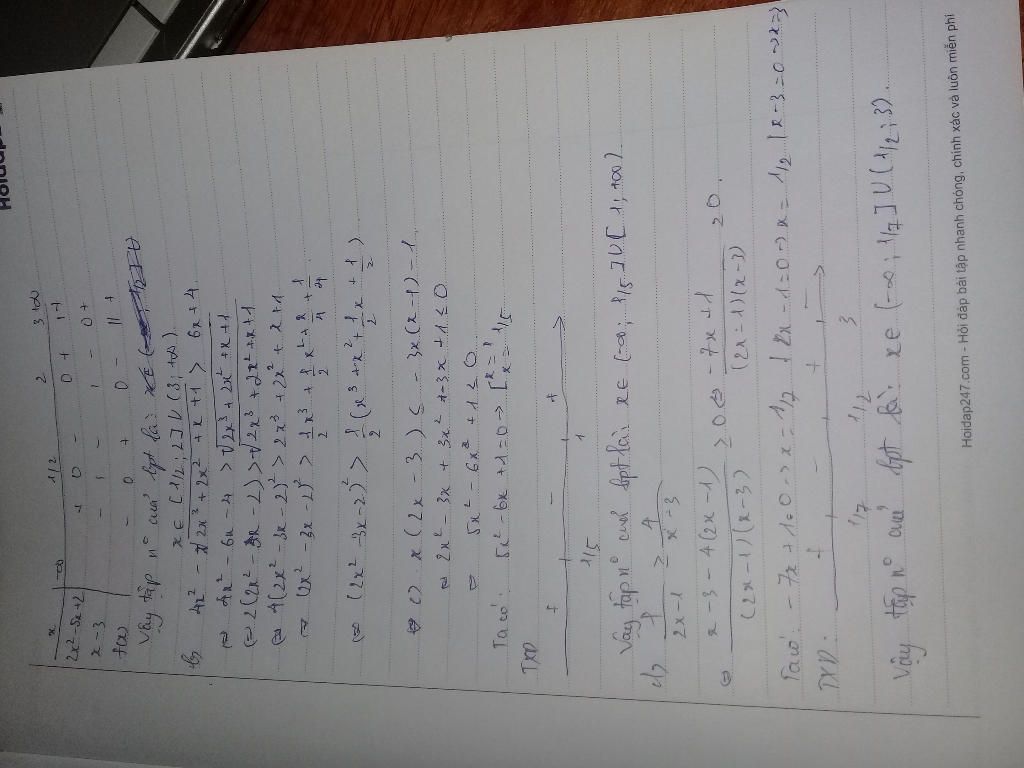 x | -∞ 1/2 2 3 +∞
2x² - 5x + 2 + 0 - 0 + | +
x - 3 - | - | - 0 +
f(x) - 0 + 0 - || +
Vậy tập n° của bpt là:
x ∈ [1/2; 2] ∪ (3; +∞)
b) 4x² - √(2x³ + 2x² + x + 1) > 6x + 4
⇔ 4x² - 6x - 4 > √(2x³ + 2x² + x + 1)
⇔ 2(2x² - 3x - 2) > √(2x³ + 2x² + x + 1)
⇔ 4(2x² - 3x - 2)² > 2x³ + 2x² + x + 1
⇔ (2x² - 3x - 2)² > 1/2 x³ + 1/2 x² + 1/4 x + 1/4
⇔ (2x² - 3x - 2)² > 1/2 (x³ + x² + 1/2 x + 1/2)
c) x(2x - 3) ≤ - 3x(x - 1) - 1
⇔ 2x² - 3x + 3x² + 3x + 1 ≤ 0
⇔ 5x² - 6x + 1 ≤ 0
Ta có: 5x² - 6x + 1 = 0 → [x = 1 x = 1/5
TXD
+ - +
1/5 1
Vậy tập n° của bpt là: x ∈ (-∞; 1/5] ∪ [1, +∞)
d) 1/(2x - 1) ≥ 4/(x - 3)
⇔ (x - 3 - 4(2x - 1))/((2x - 1)(x - 3)) ≥ 0 ⇔ (-7x + 1)/((2x - 1)(x - 3)) ≥ 0.
Ta có: -7x + 1 = 0 → x = 1/7 | 2x - 1 = 0 → x = 1/2 | x - 3 = 0 → x = 3
TXD:
+ - + -
1/7 1/2 3
Vậy tập n° của bpt là: x ∈ (-∞; 1/7] ∪ (1/2; 3).
Hoidap247.com - Hỏi đáp bài tập nhanh chóng, chính xác và luôn miễn phí